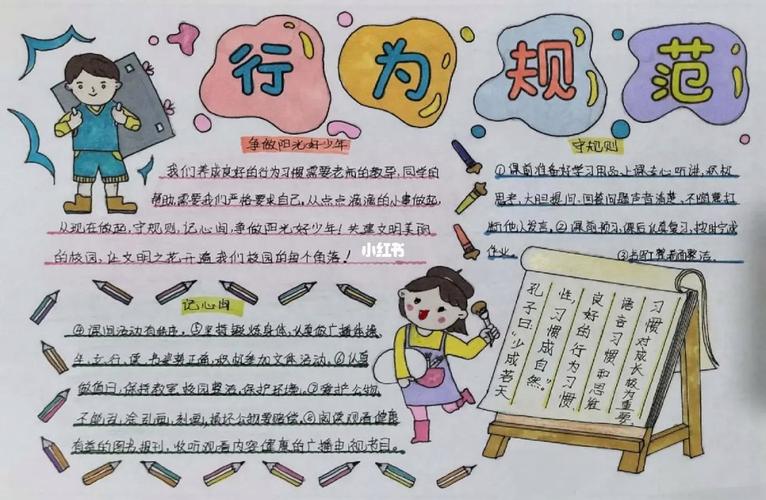 行为规范
争做阳光好少年
我们养成良好的行为习惯需要老师的教导,同学的
帮助,需要我们严格要求自己,从点点滴滴的小事做起,
从现在做起,守规则,记心间,争做阳光好少年!共建文明美丽
的校园,让文明之花开遍我们校园的每个角落!
小红书
守规则
①课前准备好学习用品,上课专心听讲,积极
思考,大胆提问,回答问题声音清楚,不随意打
断他人发言。②课前预习,课后认真复习,按时完成
作业。 ③书写
整洁。
记心间
④课间活动有秩序。⑤坚持锻炼身体,认真做广播体操
立、行、读、书
正确,积极参加文体活动。⑥认真
做值日,保持教室、校园整洁,保护环境。⑦爱护公物,
不
涂画,刻画,损坏公物要赔偿。⑧阅读观看健康
有益的图书报刊,收听观看内容健康的广播电视节目。
习惯对成长极为重要,
语言习惯和思维
良好的行为习惯
性,习惯成自然。
孔子曰:“少成若天